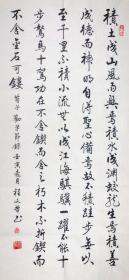 積土成山風雨興焉積水成淵蛟龍生焉積善
成德而神明自得聖心備焉故不積跬步無以
至千里不積小流無以成江海騏驥一躍不能十
步駑馬十駕功在不舍鍥而舍之朽木不折鍥而
不舍金石可鏤
荀子勸學節錄 壬寅 月 程文 書